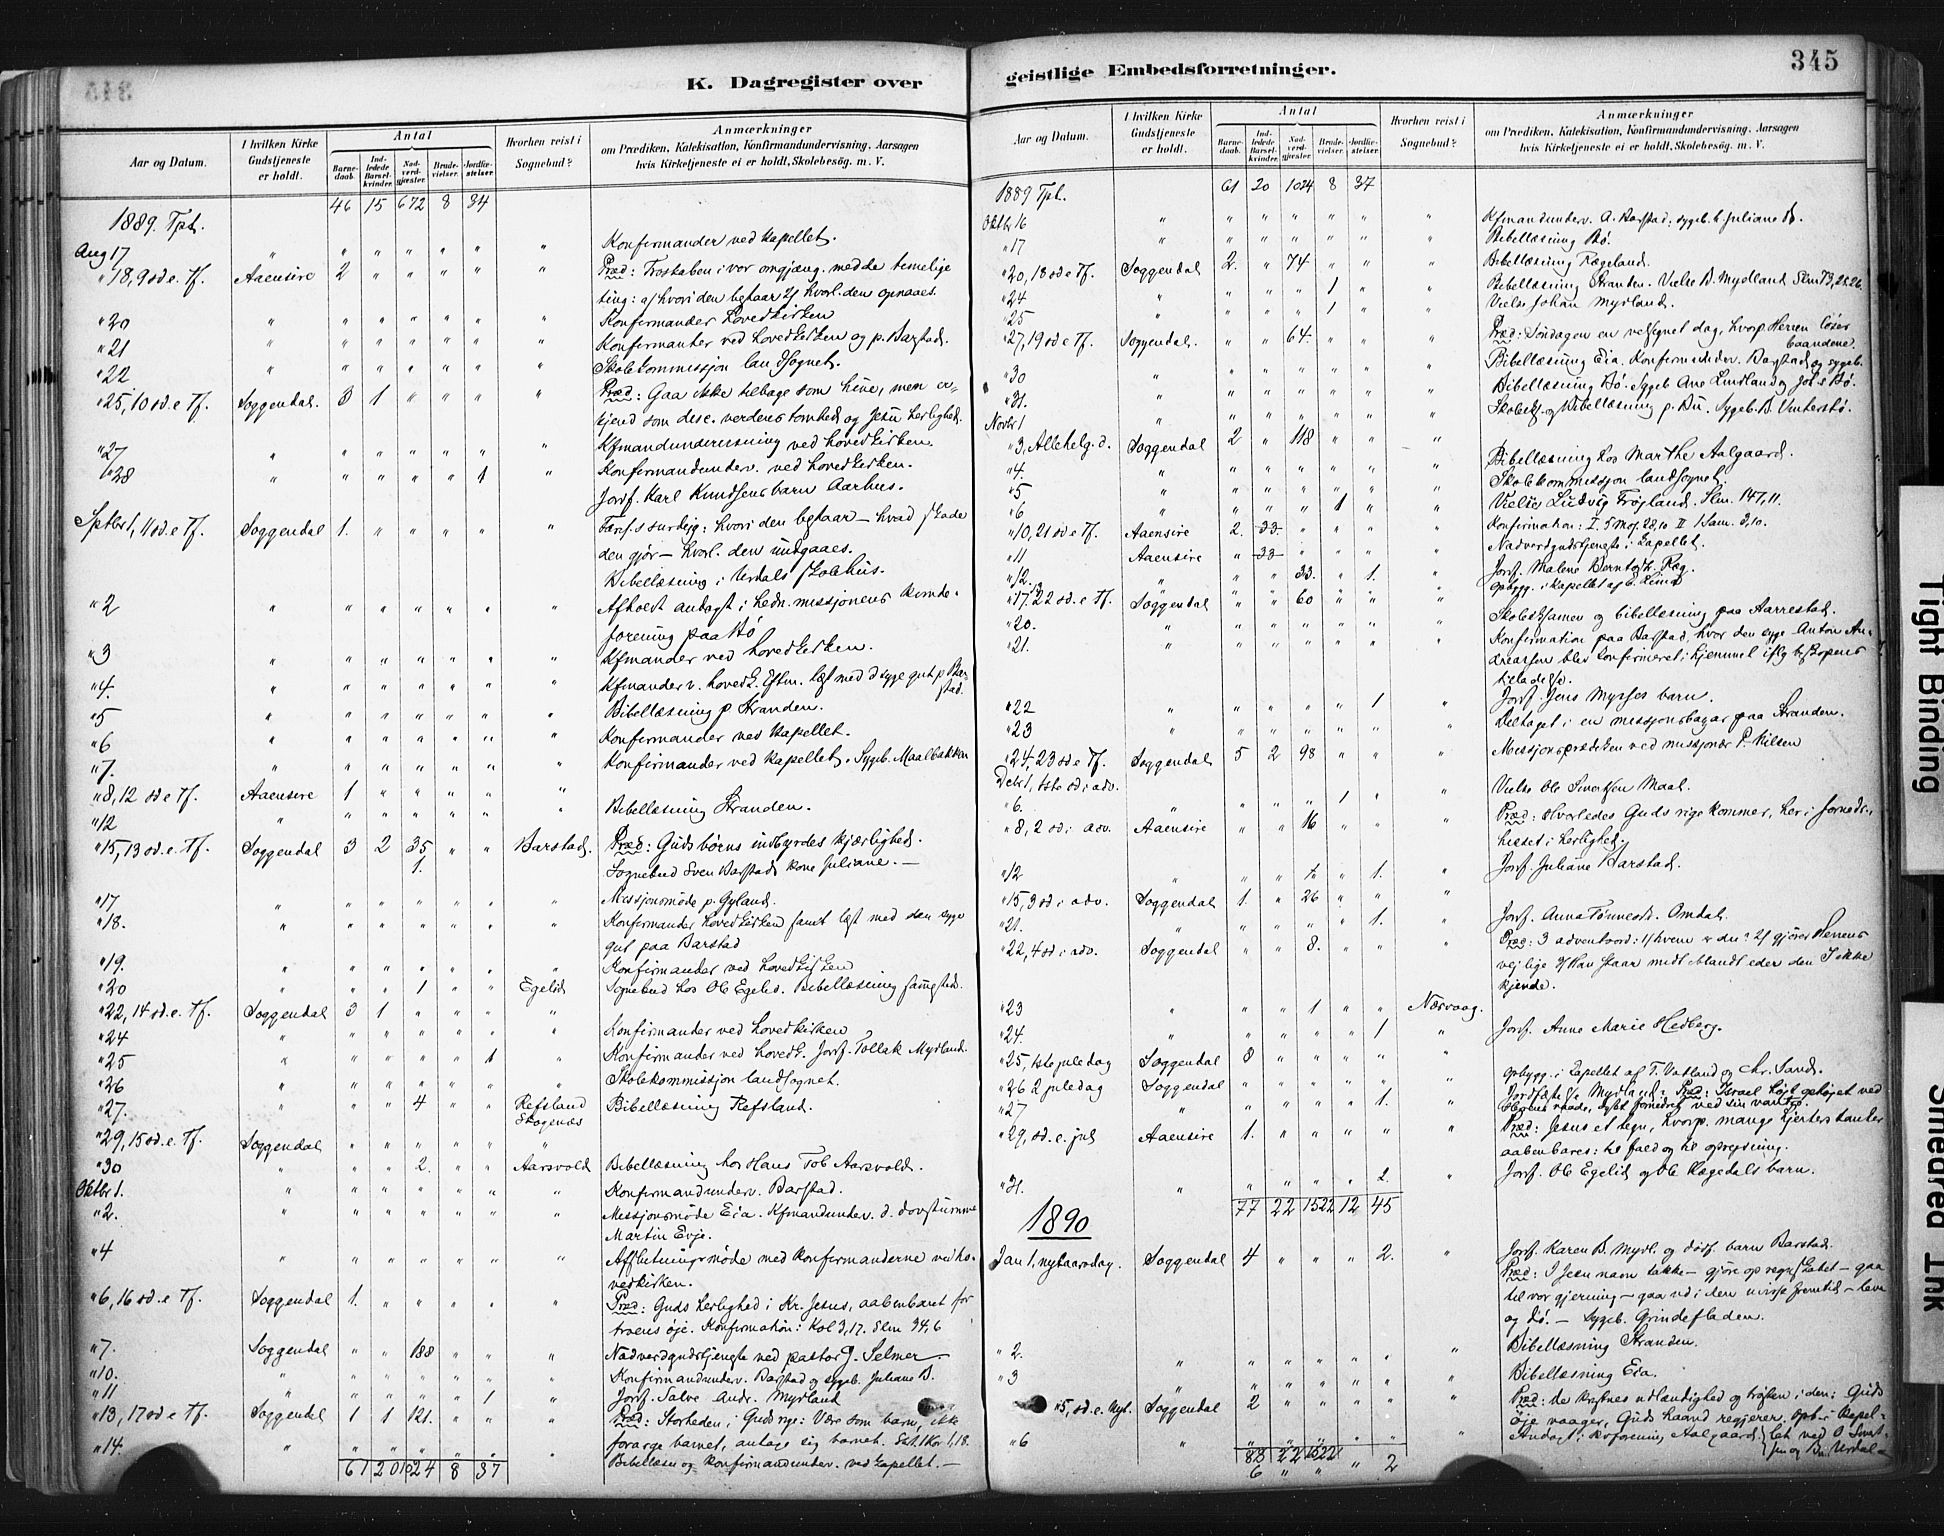 345
K. Dagregister over
Aar og Datum.
I hvilken Kirke Gudstjeneste er holdt.
Antal
Barnedaab.
Indledede Barselkvinder.
Nadverdgjæster.
Brudevielser.
Jordfæstelser.
Hvorhen reist i Sognebud?
Anmærkninger
om Prædiken, Katekisation, Konfirmandundervisning, Aarsagen
hvis Kirketjeneste ei er holdt, Skolebesøg. m. V.
1889. Tpt. 46 15 672 8 34
Aug 17 " " " " " " " Konfirmander ved kapellet.
" 18, 9 sd. e. Tf. Aaensire 2 " " " " " Præd: Troskaben i vor omgjæng. med de timelige
ting: a/ hvori den bestaar 2/ hvorl. den opnaaes.
" 20 " " " " " " " Konfirmander Hovedkirken
" 21 " " " " " " " Konfirmanter ved hovedkirken og p. Barstad.
" 22 " " " " " " Skolekommissjon landsognet.
" 25, 10 sd. e Tf. Soggendal. 3 1 " " " " Præd: Gaa ikke tilbage som hine, men er-
kjend som disc. verdens tomhed og Jesu herlighed.
" 27 " " " " " " " Kfmandundervisning ved hovedkirken.
" 28 " " " " " 1 " Konfirmandunderv. ved hovedkirken.
Jordf. Karl Knudsens barn Aarhus.
Sptbr 1, 11 sd. e Tf. Soggendal 1. " " " " " surdejg: hvori den bestaar – hvad skade
den gjør – hvorl. den undgaaes.
Bibellæsning i Urdals skolehus.
" 2 " " " " " " " Afholdt andagt i hedn. missjonens kvinde-
forening paa Bø
" 3 " " " " " " " Kfmander ved hovedkirken.
" 4. " " " " " " " Kfmander v. hovedk. Eftm. læst med d syge gut p Bar-
stad.
" 5 " " " " " " Bibellæsning p Stranden.
" 6 " " " " " " " Konfirmander ved kapellet.
" 7. " " " " " " " Konfirmander ved kapellet. Sygeb. Maalbakken
" 8, 12 sd e Tf. Aaensire 1 " " " " "
" 12 " " " " " " " Bibellæsning Stranden.
" 15, 13 sd. e. Tf. Soggendal 3 2 35 " " Barstad. Præd: Guds børns indbyrdes kjærlighed.
1. Sognebud Sven Barstads kone Juliane. –
" 17 " " " " " " " Missjonsmøde p. Gyland.
" 18. " " " " " " " Konfirmander hovedkirken samt læst med den syge
gut paa Barstad
" 19. " " " " " " " Konfirmander ved hovedkirken
" 20 " " " 1 " " Egelid Sognebud hos Ole Egelid. Bibellæsning sammested.
" 22, 14 sd. e. Tf. Soggendal 3 1 " " " "
" 24 " " " " " " " Konfirmander ved hovedkirken
" 25 " " " " " 1 " Konfirmander ved hovedk. Jordf. Tollak Mydland.
" 26 " " " " " " " Skolekommissjon landsognet.
" 27. " " " 4 " " Refsland Bibellæsning Refsland.
Skogenæs
" 29, 15 sd. e. Tf. Soggendal " " " " " "
" 30 " " " 2. " " Aarsvold Bibellæsning hos Hans Tob Aarsvold.
Oktbr 1. " " " " " " " Konfirmandunderv. Barstad.
" 2. " " " " " " " Missjonsmøde Eia. Kfmandunderv. d. døvstumme
Martin Evje.
" 4 " " " " " " " Afslutningsmøde med konfirmanderne ved ho-
vedkirken.
" 6, 16 sd. e. Tf. Soggendal 1. " " " " " Præd: Guds herlighed i Kr. Jesus, aabenbaret for
troens øje. Konfirmation: Kol 3,17. Slm 34,6
" 7. Soggendal " " 188 " " " Nadverdgudstjeneste ved pastor J. Selmer –
" 10. " " " " " " " Konfirmandunderv. Barstad og sygeb. Juliane B.
" 11 " " " " " 1 " Jordf. Salve Andr. Mydland
" 13, 17 sd e Tf. Soggendal 1 1 121. " " " Præd: Storheden i Guds rige: Vær som barn, ikke
forarge barnet, antage sig barnet. 1 Kor 1,18.
" 14. " " " " " " " Bibellæsn og konfirmandunderv. ved kapellet. –
61 20 1024 8 37
geistlige Embedsforretninger.
345
Aar og Datum.
I hvilken Kirke Gudstjeneste er holdt.
Antal
Barnedaab.
Indledede Barselkvinder.
Nadverdgjæster.
Brudevielser.
Jordfæstelser.
Hvorhen reist i Sognebud?
Anmærkninger
om Prædiken, Katekisation, Konfirmandundervisning, Aarsagen
hvis Kirketjeneste ei er holdt, Skolebesøg. m. V.
1889 Tpt. 61 20 1024 8 37
Oktbr 16 " " " " " " " Kfmandunderv. A. Barstad; sygeb. t. Juliane B.
" 17 " " " " " " " Bibellæsning Bø.
" 20, 18 sd e Tf. Soggendal 2. " 74 " " " Bibellæsning Fægeland.
" 24 " " " " 1 " " Bibellæsning Stranden. Vielse B. Mydland Slm 73,25.26.
" 25 " " " 1 " " Vielse Johan Mydland.
" 27, 19 sd e Tf. Soggendal. " " 64. " " " Præd: Søndagen en velsignet dag, hvorp Herren løser
baandene.
" 30 " " " " " " " Bibellæsning Eia. Konfirmandunderv. Barstad og sygeb.
" 31. " " " " " " " Bibellæsning Bø. Sygeb Ane Lindland og Johs Bø.
Novbr 1 " " " " " " " Bibellæsning p. Bu. Sygeb. B. Understø.
" 3, Allehelg. d. Soggendal 2 " 118 " " "
" 4. " " " " " " " Bibellæsning hos Marthe Aalgaard.
" 5 " " " " " " " Skolekommissjon landsognet.
" 6 " " " " 1 " " Vielse Ludvig Frøjland. Slm. 147,11.
" 10, 21 sd e Tf. Aaensire 2. 33. " " " Konfirmation: I. 5 Mos. 28,10 II 1 Sam. 3,10.
" 11 Aaensire " 33 " " " " Nadverdgudstjeneste i kapellet.
" 12. " " " 33. " 1. " Jordf. Malene Berntsdt. Ræg.
opbygg. i kapellet af S. Lima
" 17. 22 sd. e Tf. Soggendal " " 60 " " "
" 20. " " " " " " " Skoleeksamen og bibellæsning paa Aarrestad.
" 21. " " " " " " Konfirmation paa Barstad, hvor den syge Anton An-
dreassen blev konfirmeret i hjemmet iflg biskopens
tilladelse.
" 22 " " " " " 1 " Jordf. Jens Mysses barn.
" 23 " " " " " " Deltaget i en missjonsbazar paa Stranden.
" 24, 23 sd e Tf. Soggendal 5 2 98 " " " Missjonsprædiken ved missjonær P. Nilsen
Debr 1, 1ste sd. i adv.
" 6. " " " " 1 " " Vielse Ole Sivertsen Maal.
" 8, 2 sd. i adv. Aaensire " " 16 " " " Præd: Hvorledes Guds rige kommer, her i fornedr.
hisset i herlighed.
" 12 " " " " 1. " Jordf. Juliane Barstad.
" 15, 3 sd. i adv. Soggendal 1. " 26 " " "
" 21. " " " " " 1. " Jordf. Anna Tønnesd. Omdal.
" 22, 4 sd. i adv. Soggendal " " 8. " " " Præd: 3 adventsord: 1/ hvem er du? 2/ gjører Herrens
vej lige 3/ Han staar midt iblandt eder den I ikke
kjende.
" 23 " " " 1 " " Næsvaag.
" 24. " " " " " 1 " Jordf. Anne Marie Hedberg.
" 25, 1ste juledag Soggendal 8 " " " " " opbygg. i kapellet af T. Vatland og Chr. Sand.
" 26 2 juledag Soggendal " " " " " " Præd: Israel højt ophøjet ved
" 27 " " " " " 1. " Guds naade, dybt fornedret ved sin vantro.
" 29, sd. e. jul Aaensire 1. " " " " " Præd: Jesus et tegn, hvorp. mange hjerters tanker
aabenbares: til fald og til opreisning.
" 31. " " " " " 2. " Jordf. Ole Egelid og Ole Rægedals barn.
77 22 1522 12 45
1890
Jan 1, nytaarsdag. Soggendal 4 " " " 2. " Jordf. Karen B. Mydl. og dødf. barn Barstad.
Præd: I Jesu navn takke – gjøre op regnskabet – gaa
til vor gjerning – gaa ud i den uvisse fremtid – leve
og dø. – Sygeb. Grindefladen.
" 2. " " " " " " " Bibellæsning Stranden.
" 3 " " " " " " " Bibellæsning Eia.
" 5, sd. e. Nyt. Soggendal 2 " " " " " Præd: De kristnes udlændighed og trøsten i den: Guds
øje vaager, Guds haand regjerer. Opb. i kapel-
" 6 " " " " " " " Andagt i kv.forening Aalgaard. let ved O Sivert-
sen og Urdal –
83 22 1522
6 " " " 2